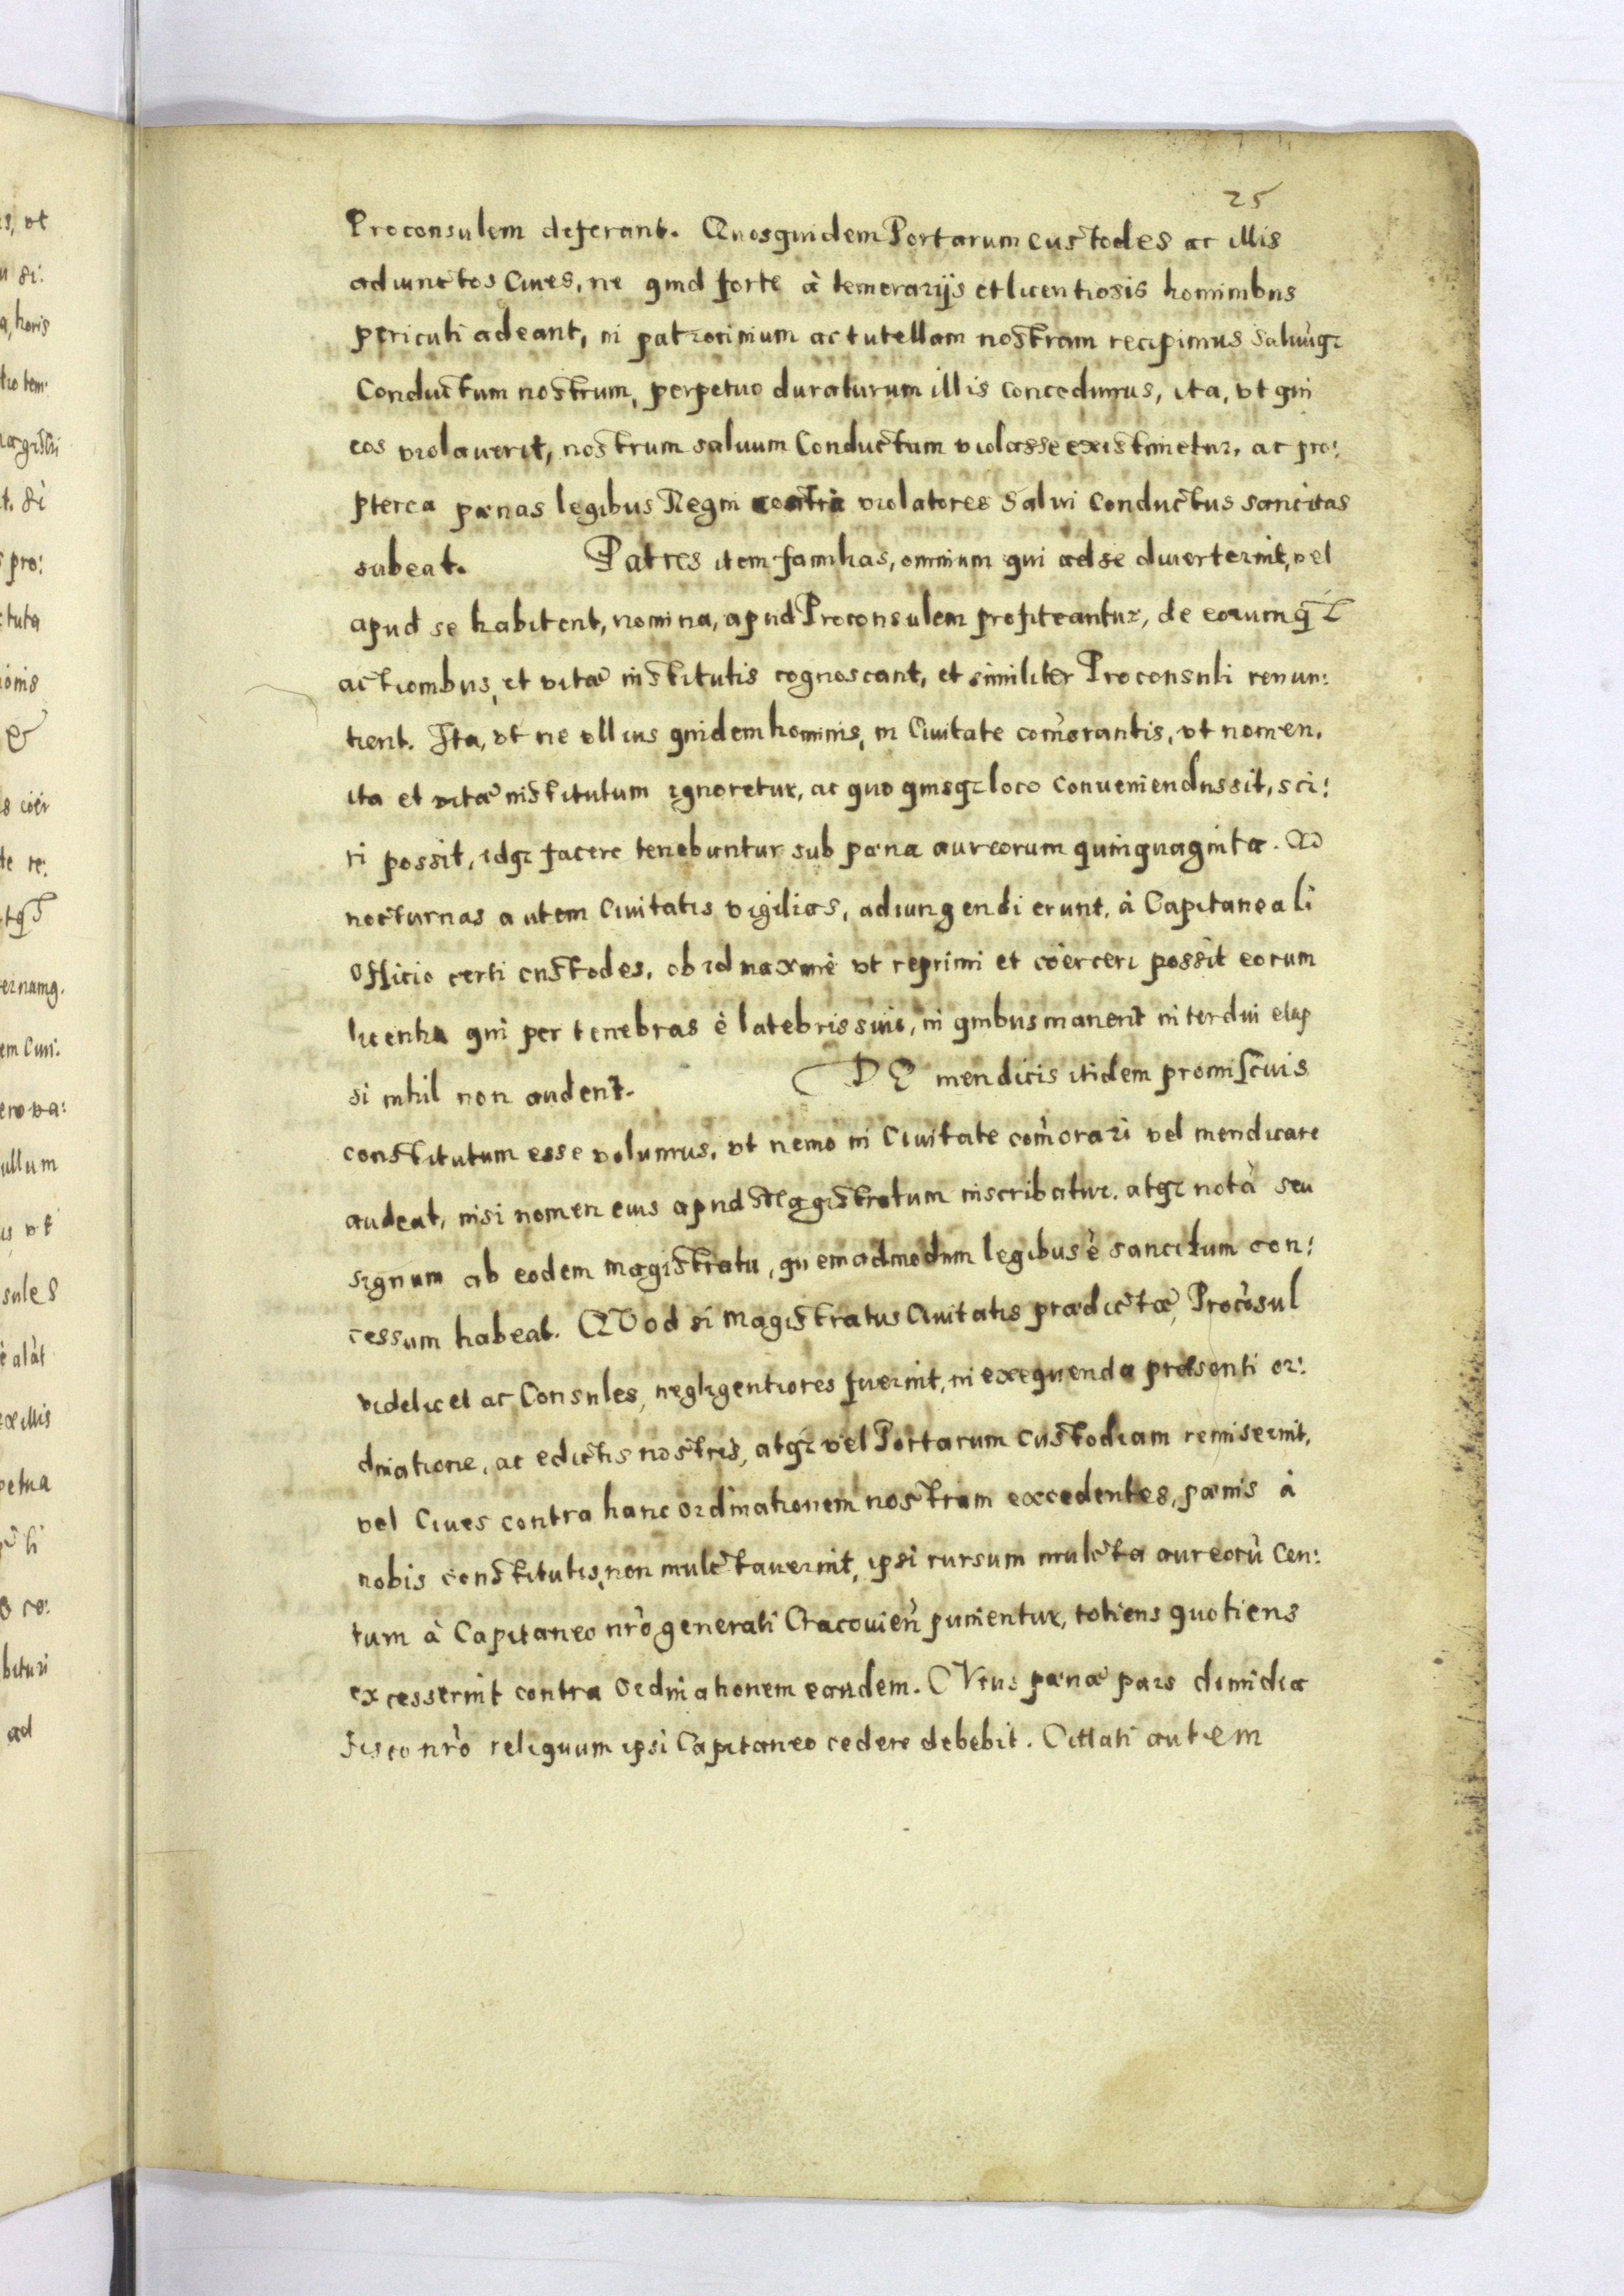 25
Proconsulem deferant. Quosquidem Portarum custodes ac illis
adiunctos Ciues, ne quid forte à temerarijs et licentiosis hominibus
periculi adeant, in patrocinium ac tutellam nostram recipimus saluūqꝫ
Conductum nostrum, perpetuo duraturum illis concedimus, ita, vt qui
eos violauerit, nostrum saluum Conductum violasse existimetur, ac pro:
pterea pœnas legibus Regni contra violatores Salui Conductus sancitas
subeat. Patres item familias, omnium qui ad se diuerterint, vel
apud se habitent, nomina, apud Proconsulem profiteantur, de eorumq́ꝫ
actionibus, et vitæ institutis cognoscant, et similiter Proconsuli renun:
tient. Ita, vt ne vllius quidem hominis, in Ciuitate com̃orantis, vt nomen,
ita et vitæ institutum ignoretur, ac quo quisqꝫ loco conueniendus sit, sci:
ri possit, idqꝫ facere tenebuntur sub pœna aureorum quinquaginta. AD
nocturnas autem Ciuitatis vigilias, adiungendi erunt, à Capitaneali
Officio certi custodes, ob id maximè vt reprimi et coërceri possit eorum
licentia qui per tenebras è latebris suis, in quibus manent interdiu elap
si nihil non audent. DE mendicis itidem promiscuis
constitutum esse volumus, vt nemo in Ciuitate com̃orari vel mendicare
audeat, nisi nomen eius apud Magistratum inscribatur, atqꝫ notā seu
signum ab eodem magistratu, quemadmodum legibus ē sancitum con:
cessum habeat. QVod si Magistratus Ciuitatis prædictæ, Procōsul
videlicet ac Consules, negligentiores fuerint, in exequenda præsenti or:
dinatione, ac edictis nostris, atqꝫ vel Portarum custodiam remiserint,
vel Ciues contra hanc ordinationem nostram excedentes, pœnis à
nobis constitutis, non mulctauerint, ipsi rursum mulcta aureorū Cen:
tum à Capitaneo nr̃o generali Cracouień punientur, totiens quotiens
excesserint contra Ordinationem eandem. CViùs pœnæ pars dimidia
fisco nr̃o reliquum ipsi Capitaneo cedere debebit. Cittati autem